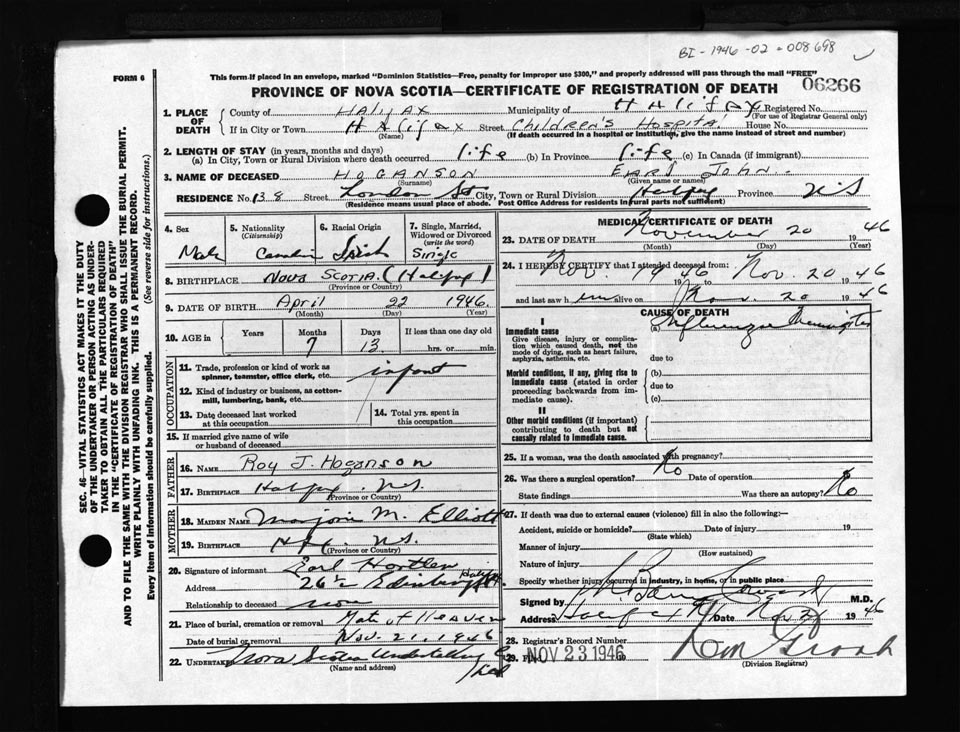 BI-1946-02-008698
FORM 6
This form if placed in an envelope, marked "Dominion Statistics—Free, penalty for improper use $300," and properly addressed will pass through the mail "FREE"
PROVINCE OF NOVA SCOTIA—CERTIFICATE OF REGISTRATION OF DEATH
06266
1. PLACE OF DEATH
County of Halifax Municipality of Halifax Registered No.
(For use of Registrar General only)
If in City or Town Halifax Street Children's Hospital House No.
(Name) (If death occurred in a hospital or institution, give the name instead of street and number)
2. LENGTH OF STAY (in years, months and days)
(a) In City, Town or Rural Division where death occurred life (b) In Province life (c) In Canada (if immigrant)
3. NAME OF DECEASED HOGANSON EARL JOHN
(Surname) (Given name or names)
RESIDENCE No. 138 Street London St City, Town or Rural Division Province N.S
(Residence means usual place of abode. Post Office Address for residents in rural parts not sufficient)
4. Sex
Male
5. Nationality (Citizenship)
Canadian
6. Racial Origin
Irish
7. Single, Married, Widowed or Divorced (write the word)
Single
8. BIRTHPLACE Nova Scotia (Halifax)
(Province or Country)
9. DATE OF BIRTH April 22 1946
(Month) (Day) (Year)
10. AGE in Years Months Days If less than one day old
7 13 hrs. or min.
OCCUPATION
11. Trade, profession or kind of work as spinner, teamster, office clerk, etc. infant
12. Kind of industry or business, as cotton-mill, lumbering, bank, etc.
13. Date deceased last worked at this occupation
14. Total yrs. spent in this occupation
15. If married give name of wife or husband of deceased
FATHER
16. NAME Roy J. Hoganson
17. BIRTHPLACE N.S.
(Province or Country)
MOTHER
18. MAIDEN NAME Marjorie M. Elliott
19. BIRTHPLACE N.S.
(Province or Country)
20. Signature of informant Earl
Address
Relationship to deceased none
21. Place of burial, cremation or removal Gate of Heaven
Date of burial or removal Nov. 21. 1946
22. UNDERTAKER Nova Scotia Undertaking Co Ltd
(Name and address)
MEDICAL CERTIFICATE OF DEATH
23. DATE OF DEATH November 20 1946
(Month) (Day) (Year)
24. I HEREBY CERTIFY that I attended deceased from
Nov. 1946 to Nov. 20 1946
and last saw him alive on Nov. 20 1946
CAUSE OF DEATH
I
Immediate cause
Give disease, injury or complication which caused death, not the mode of dying, such as heart failure, asphyxia, asthenia, etc.
(a) Influenza Meningitis
due to
Morbid conditions, if any, giving rise to immediate cause (stated in order proceeding backwards from immediate cause).
(b)
due to
(c)
II
Other morbid conditions (if important) contributing to death but not causally related to immediate cause.
25. If a woman, was the death associated with pregnancy?
26. Was there a surgical operation? No Date of operation 19
State findings Was there an autopsy? No
27. If death was due to external causes (violence) fill in also the following:—
Accident, suicide or homicide? Date of injury 19
(State which)
Manner of injury
(How sustained)
Nature of injury
Specify whether injury occurred in industry, in home, or in public place
Signed by M.D.
Address Date Nov 1946
28. Registrar's Record Number
29. Filed NOV 23 1946
(Division Registrar)
SEC. 46—VITAL STATISTICS ACT MAKES IT THE DUTY
OF THE UNDERTAKER OR PERSON ACTING AS UNDER-
TAKER TO OBTAIN ALL THE PARTICULARS REQUIRED
IN THE "CERTIFICATE OF REGISTRATION OF DEATH"
AND TO FILE THE SAME WITH THE DIVISION REGISTRAR WHO SHALL ISSUE THE BURIAL PERMIT.
WRITE PLAINLY WITH UNFADING INK. THIS IS A PERMANENT RECORD.
Every item of information should be carefully supplied. (See reverse side for instructions.)